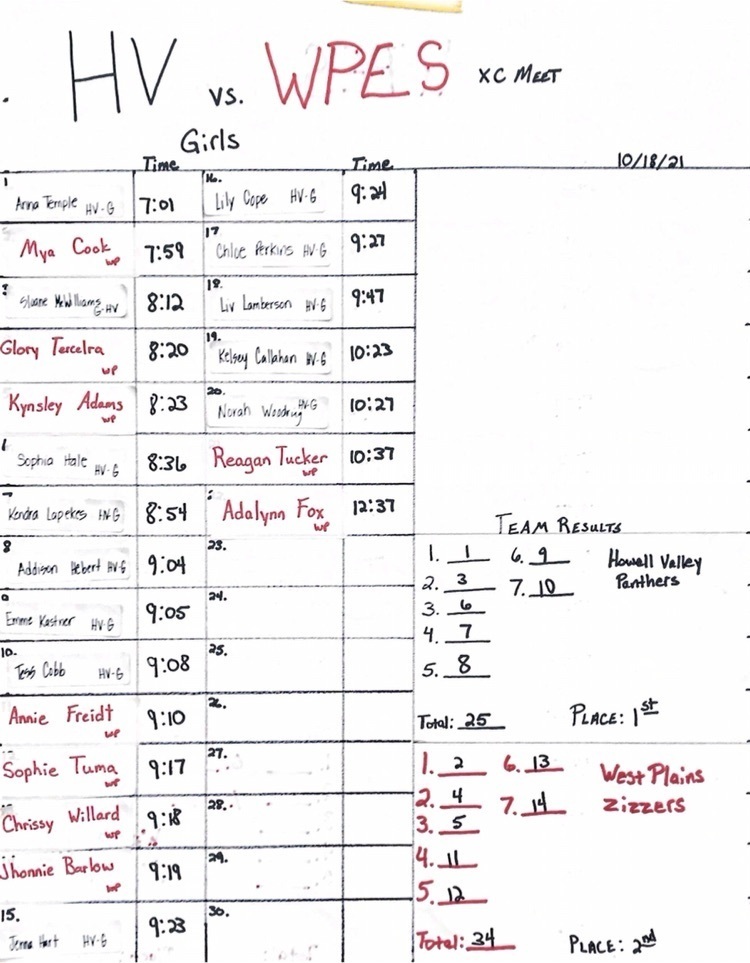 HV vs. WPES XC MEET
Girls
Time Time 10/18/21
1 Anna Temple HV-G 7:01
Mya Cook WP 7:59
3 Sloane McWilliams G-HV 8:12
Glory Tercelra WP 8:20
Kynsley Adams WP 8:23
6 Sophia Hale HV-G 8:36
7 Kendra Lapekes HV-G 8:54
8 Addison Hebert HV-G 9:04
9 Emme Kastner HV-G 9:05
10. Tess Cobb HV-G 9:08
Annie Freidt WP 9:10
Sophie Tuma WP 9:17
Chrissy Willard WP 9:18
Jhonnie Barlow WP 9:19
15. Jenna Hart HV-G 9:23
16. Lily Cope HV-G 9:24
17 Chloe Perkins HV-G 9:27
18. Liv Lamberson HV-G 9:47
19. Kelsey Callahan HV-G 10:23
20. Norah Woodring HV-G 10:27
Reagan Tucker WP 10:37
Adalynn Fox WP 12:37
23.
24.
25.
26.
27.
28.
29.
30.
TEAM RESULTS
1. 1 6. 9 Howell Valley
2. 3 7. 10 Panthers
3. 6
4. 7
5. 8
Total: 25 PLACE: 1st
1. 2 6. 13 West Plains
2. 4 7. 14 Zizzers
3. 5
4. 11
5. 12
Total: 34 PLACE: 2nd